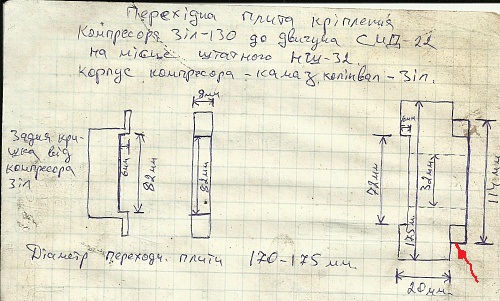 Перехідна плита кріплення
Компресора Зіл-130 до двигуна СМД-22
на місце штатного НШ-32.
Корпус компресора - камаз, колінвал - Зіл.
8мм
Задня кри-
шка від
компресора
Зіл
6мм
82мм
82мм
6мм
72мм
32мм
175мм
114мм
20мм.
Діаметр переходн. плити 170-175 мм.